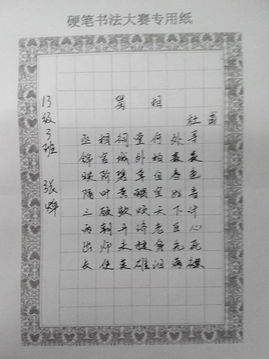 硬笔书法大赛专用纸
蜀相
杜甫
丞相祠堂何处寻
锦官城外柏森森
映阶碧草自春色
隔叶黄鹂空好音
三顾频烦天下计
两朝开济老臣心
出师未捷身先死
长使英雄泪满襟
13级3班 张